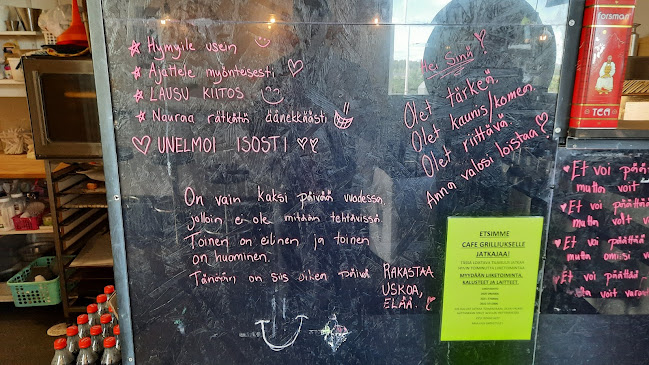 Hymyile usein
Ajattele myönteisesti
LAUSU KIITOS
Naura rätkätä äänekkäästi
UNELMOI ISOSTI
Hei Sinä
Olet tärkeä.
Olet kaunis/komea.
Olet riittävä.
Anna valosi loistaa
On vain kaksi päivää vuodessa,
jolloin ei ole mitään tehtävissä.
Toinen on eilinen ja toinen
on huominen.
Tänään on siis oikea päivä
RAKASTAA
USKOA,
ELÄÄ.
ETSIMME
CAFE GRILLIUKSELLE
JATKAJAA!
MYYDÄÄN LIIKETOIMINTA,
KALUSTEET JA LAITTEET.
forsman
TEA
Et voi päättää
mutta voit
Et voi päättää
mutta voit
Et voi päättää
mutta omii
Et voi päättää